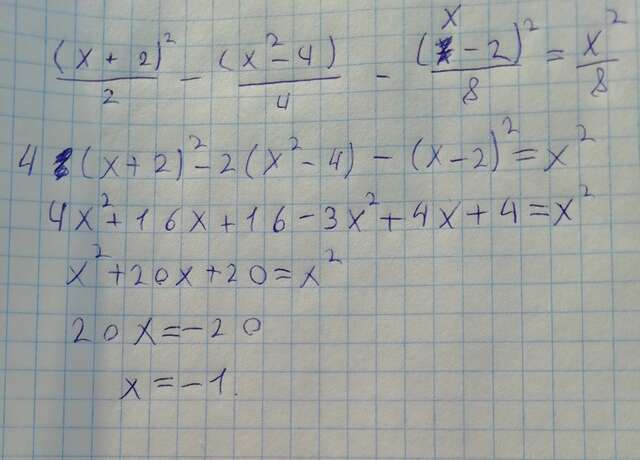 (x + 2)²/2 - (x² - 4)/4 - (x - 2)²/8 = x²/8
4 (x + 2)² - 2 (x² - 4) - (x - 2)² = x²
4x² + 16x + 16 - 3x² + 4x + 4 = x²
x² + 20x + 20 = x²
20x = -20
x = -1.